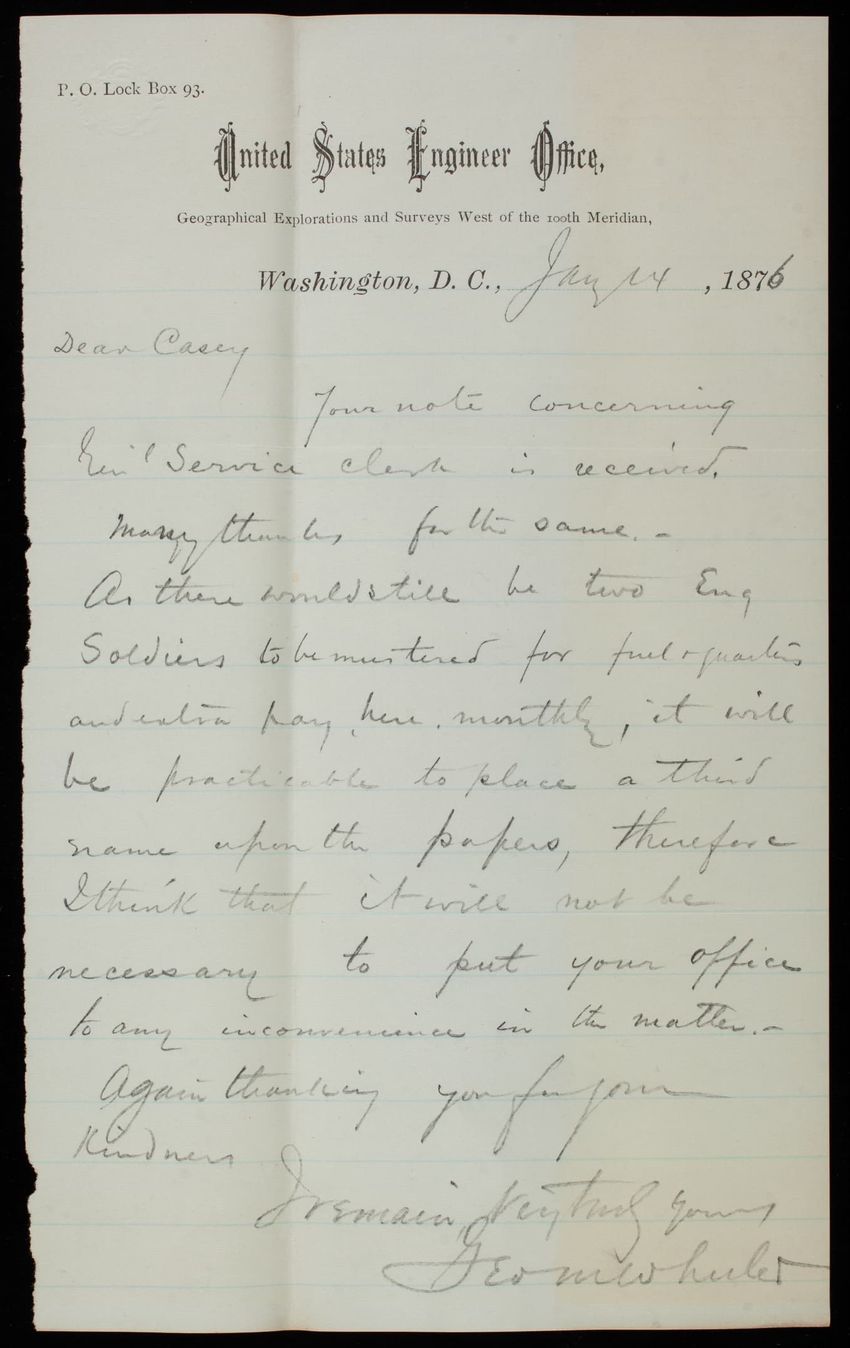 P. O. Lock Box 93.
United States Engineer Office,
Geographical Explorations and Surveys West of the 100th Meridian,
Washington, D. C., Jany 14, 1876
Dear Casey
Your note concerning
Gen'l Service clerk is received.
Many thanks for the same. -
As there would still be two Eng
Soldiers to be mustered for fuel + quarters
and extra pay, here, monthly, it will
be practicable to place a third
name upon the papers, therefore
I think that it will not be
necessary to put your office
to any inconvenience in the matter. -
Again thanking you for your
Kindness
I remain, Very truly yours
Geo M Wheeler